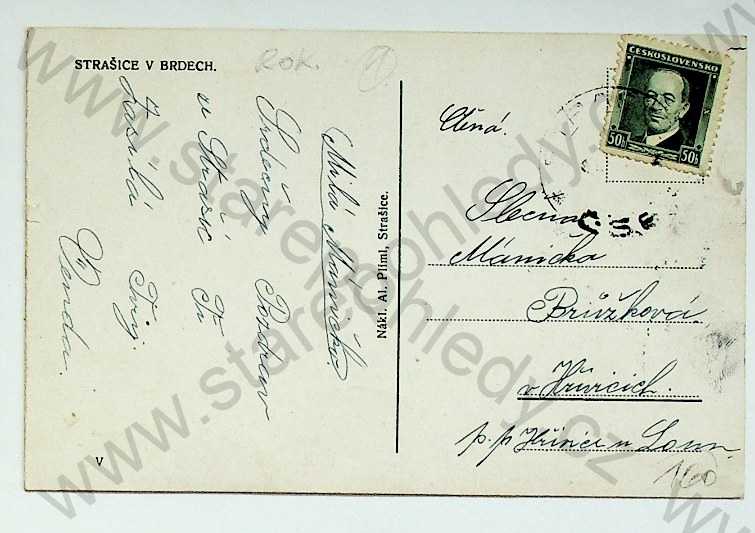 STRAŠICE V BRDECH.
Rok.
Milá Máničko
Srdečný Pozdrav
ze Strašic Ti
Zasílá Tvůj
Venda.
V
Nákl. Al. Pliml, Strašice.
ČESKOSLOVENSKO
50h 50h
Ctěná.
Slečna
Mánička
Brůžková
v Hřivicích.
p. p. Hřivice u Loun
160
www.starepohledy.cz